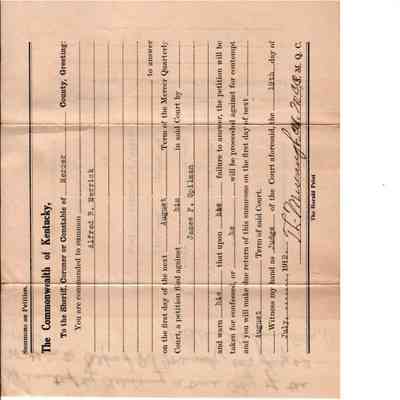 Summons on Petition.
The Commonwealth of Kentucky,
To the Sheriff, Coroner or Constable of Mercer County, Greeting:
You are commanded to summon
Alfred B. Herrick
to answer
on the first day of the next August Term of the Mercer Quarterly
Court, a petition filed against him in said Court by
James P. Spilman
and warn him that upon his failure to answer, the petition will be
taken for confessed, or he will be proceeded against for contempt
and you will make due return of this summons on the first day of next
August Term of said Court.
Witness my hand as Judge of the Court aforesaid, the 19th day of
July. 1912.
M. Q. C.
The Herald Print